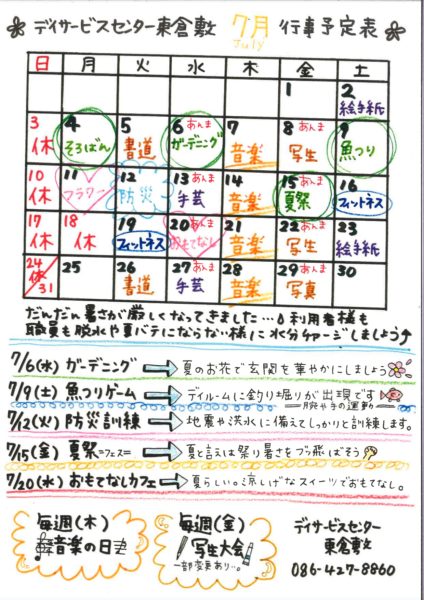 デイサービスセンター東倉敷 7月 July 行事予定表
日 月 火 水 木 金 土
1 2 絵手紙
3 休 4 そろばん 5 書道 6 あんま ガーデニング 7 音楽 8 あんま 写生 9 魚つり
10 休 11 フラワー 12 防災 13 あんま 手芸 14 音楽 15 あんま 夏祭 16 フィットネス
17 休 18 休 19 フィットネス 20 あんま おもてなし 21 音楽 22 あんま 写生 23 絵手紙
24 休 31 25 26 書道 27 あんま 手芸 28 音楽 29 あんま 写真 30
だんだん暑さが厳しくなってきました…利用者様も
職員も脱水や夏バテにならない様に水分チャージしましょう
7/6(水) ガーデニング 夏のお花で玄関を華やかにしましょう
7/9(土) 魚つりゲーム デイルームに釣り堀りが出現です
腕や手の運動
7/12(火) 防災訓練 地震や洪水に備えてしっかりと訓練します。
7/15(金) 夏祭=フェス= 夏と言えば祭り暑さをブッ飛ばそう
7/20(水) おもてなしカフェ 夏らしい。涼しげなスイーツでおもてなし。
毎週(木)
音楽の日
毎週(金)
写生大会
一部変更あり…。
デイサービスセンター
東倉敷
086-427-8860